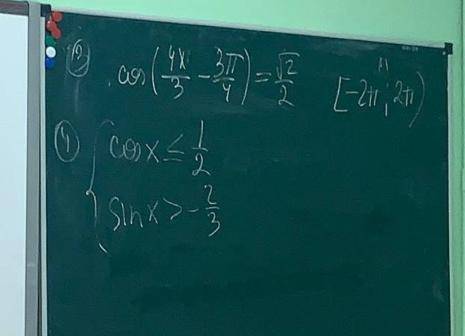 ② cos(4x/3 - 3π/4) = √2/2 [-2π; 2π)
④ { cosx ≤ 1/2
sinx > -2/3